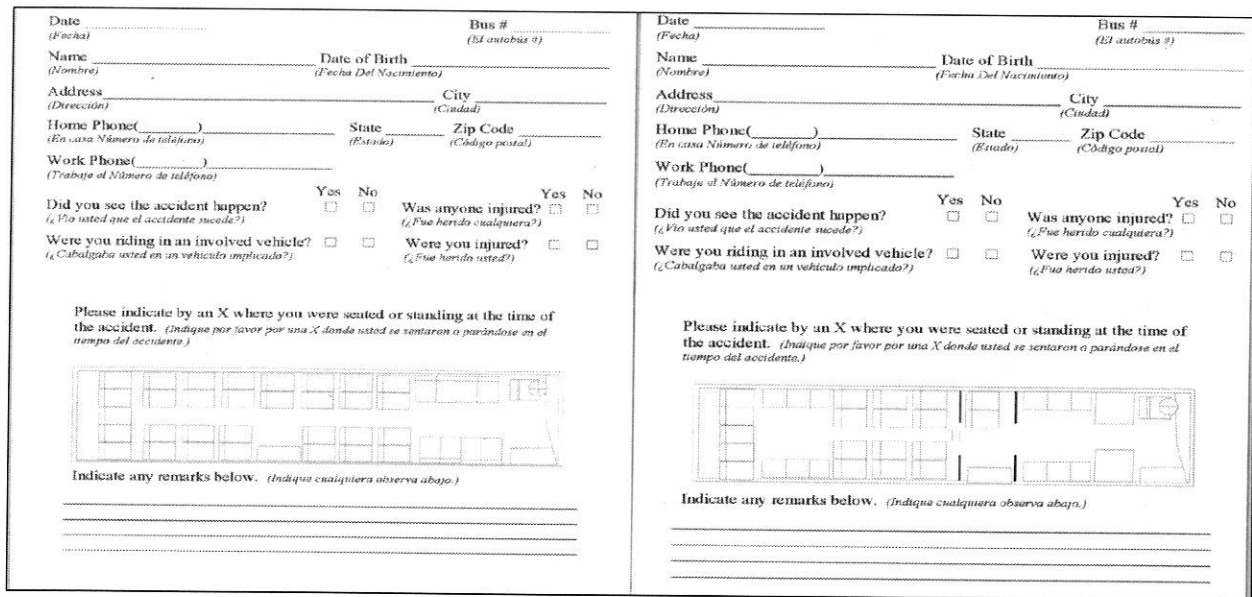 Date Bus #
(Fecha) (El autobús #)
Name Date of Birth
(Nombre) (Fecha Del Nacimiento)
Address City
(Dirección) (Ciudad)
Home Phone( ) State Zip Code
(En casa Número de teléfono) (Estado) (Código postal)
Work Phone( )
(Trabaje el Número de teléfono)
Yes No Yes No
Did you see the accident happen? Was anyone injured?
(¿Vio usted que el accidente sucede?) (¿Fue herido cualquiera?)
Were you riding in an involved vehicle? Were you injured?
(¿Cabalgaba usted en un vehículo implicado?) (¿Fue herido usted?)
Please indicate by an X where you were seated or standing at the time of
the accident. (Indique por favor por una X donde usted se sentaron o parándose en el
tiempo del accidente.)
Indicate any remarks below. (Indique cualquiera observa abajo.)
Date Bus #
(Fecha) (El autobús #)
Name Date of Birth
(Nombre) (Fecha Del Nacimiento)
Address City
(Dirección) (Ciudad)
Home Phone( ) State Zip Code
(En casa Número de teléfono) (Estado) (Código postal)
Work Phone( )
(Trabaje el Número de teléfono)
Yes No Yes No
Did you see the accident happen? Was anyone injured?
(¿Vio usted que el accidente sucede?) (¿Fue herido cualquiera?)
Were you riding in an involved vehicle? Were you injured?
(¿Cabalgaba usted en un vehículo implicado?) (¿Fue herido usted?)
Please indicate by an X where you were seated or standing at the time of
the accident. (Indique por favor por una X donde usted se sentaron o parándose en el
tiempo del accidente.)
Indicate any remarks below. (Indique cualquiera observa abajo.)